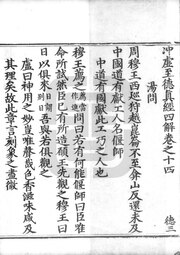 沖虛至德真經四解卷之十四 德三
湯問
周穆王西巡狩越崑崙不至弇山反還未及
中國道有獻工人名偃師
中道有國獻此工巧之人也
穆王薦之薦當作進問曰若有何能偃師曰臣唯
命所試然臣已有所造願王先觀之穆王曰
日以俱來吾與若俱觀之
盧曰神用之妙豈唯聲色香滋味咸及
其理矣故此章言刻象之盡微